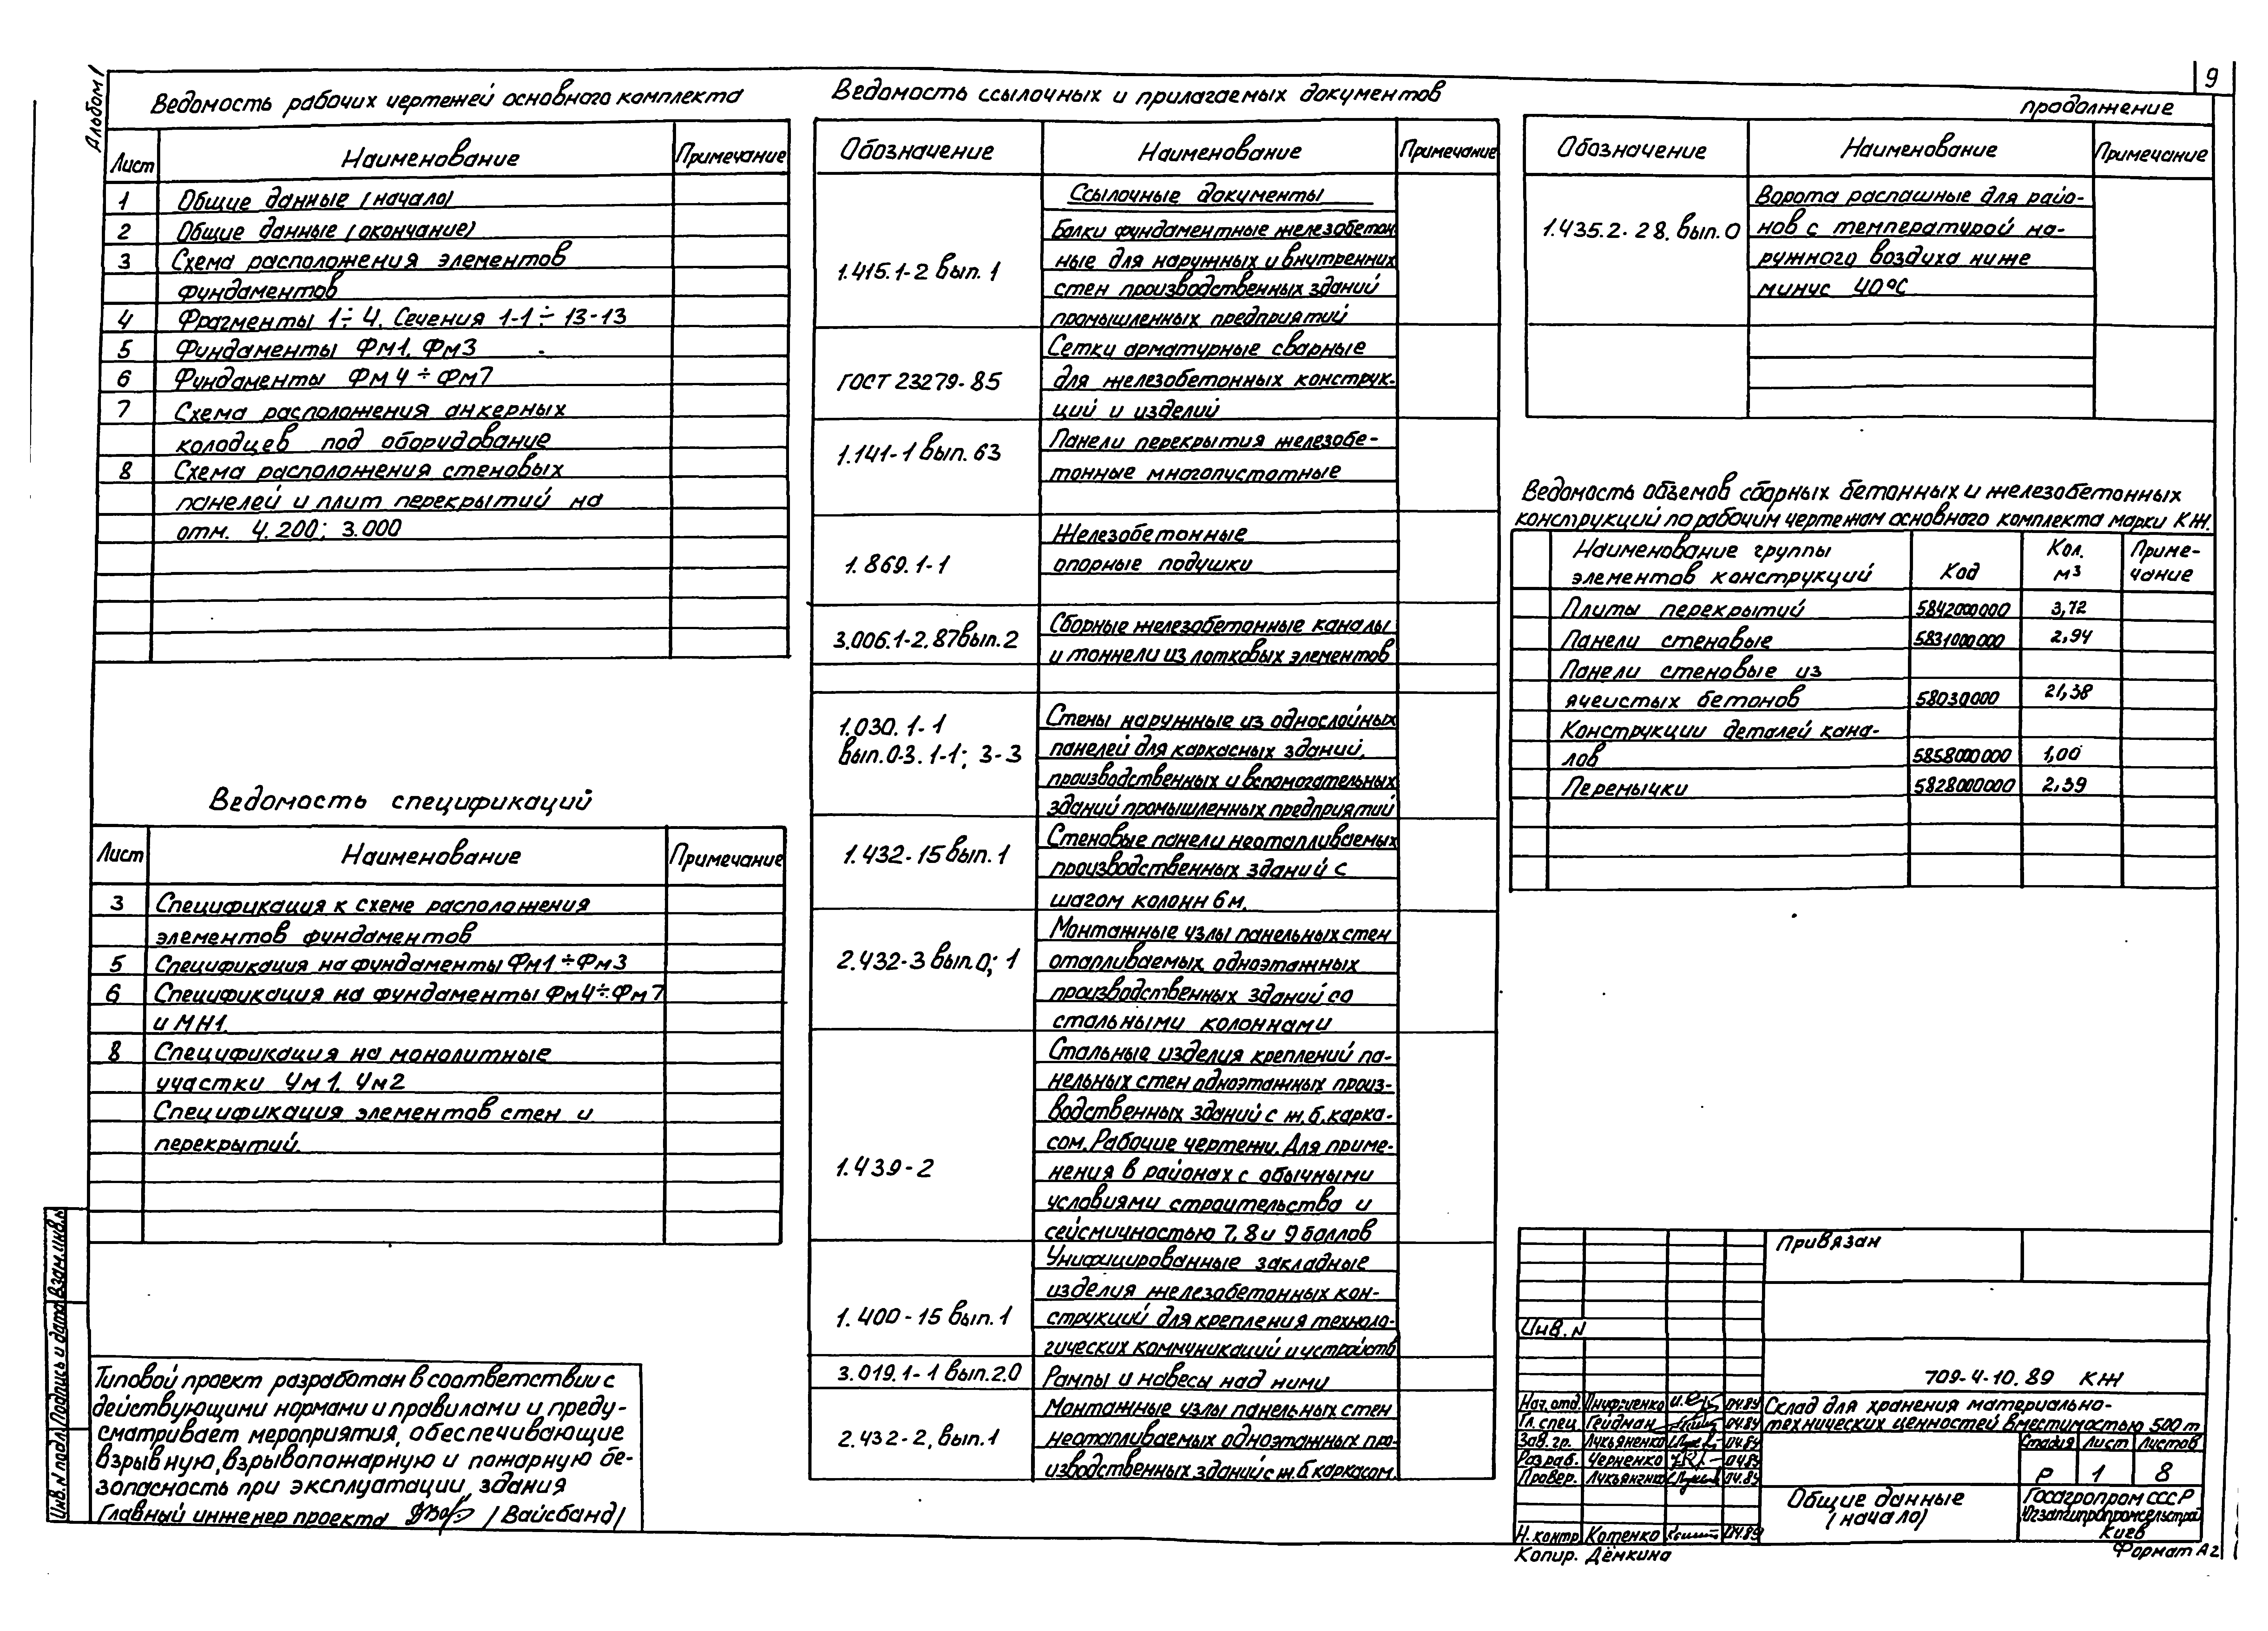 Альбом 1
9
Ведомость рабочих чертежей основного комплекта
Лист Наименование Примечание
1 Общие данные (начало)
2 Общие данные (окончание)
3 Схема расположения элементов
фундаментов
4 Фрагменты 1÷4. Сечения 1-1÷13-13
5 Фундаменты Фм1. Фм3
6 Фундаменты Фм4÷Фм7
7 Схема расположения анкерных
колодцев под оборудование
8 Схема расположения стеновых
панелей и плит перекрытий на
отм. 4.200; 3.000
Ведомость спецификаций
Лист Наименование Примечание
3 Спецификация к схеме расположения
элементов фундаментов
5 Спецификация на фундаменты Фм1÷Фм3
6 Спецификация на фундаменты Фм4÷Фм7
и МН1.
8 Спецификация на монолитные
участки Ум1. Ум2
Спецификация элементов стен и
перекрытий.
Типовой проект разработан в соответствии с
действующими нормами и правилами и преду-
сматривает мероприятия, обеспечивающие
взрывную, взрывопожарную и пожарную бе-
зопасность при эксплуатации здания
Главный инженер проекта /Вайсбанд/
Инв. N подл. Подпись и дата Взам.инв.N
Ведомость ссылочных и прилагаемых документов
Обозначение Наименование Примечание
Ссылочные документы
1.415.1-2 вып. 1 Балки фундаментные железобетон
ные для наружных и внутренних
стен производственных зданий
промышленных предприятий
ГОСТ 23279-85 Сетки арматурные сварные
для железобетонных конструк-
ций и изделий
1.141-1 вып. 63 Панели перекрытия железобе-
тонные многопустотные
1.869.1-1 Железобетонные
опорные подушки
3.006.1-2.87 вып.2 Сборные железобетонные каналы
и тоннели из лотковых элементов
1.030.1-1
вып.0-3. 1-1; 3-3 Стены наружные из однослойных
панелей для каркасных зданий,
производственных и вспомогательных
зданий промышленных предприятий
1.432-15 вып.1 Стеновые панели неотапливаемых
производственных зданий с
шагом колонн 6м.
2.432-3 вып.0; 1 Монтажные узлы панельных стен
отапливаемых одноэтажных
производственных зданий со
стальными колоннами
1.439-2 Стальные изделия креплений па-
нельных стен одноэтажных произ-
водственных зданий с ж.б. карка-
сом. Рабочие чертежи. Для приме-
нения в районах с обычными
условиями строительства и
сейсмичностью 7, 8 и 9 баллов
1.400-15 вып.1 Унифицированные закладные
изделия железобетонных кон-
струкций для крепления техноло-
гических коммуникаций и устройств
3.019.1-1 вып.2.0 Рампы и навесы над ними
2.432-2. вып.1 Монтажные узлы панельных стен
неотапливаемых одноэтажных про-
изводственных зданий с ж.б каркасом.
продолжение
Обозначение Наименование Примечание
1.435.2-28. вып.0 Ворота распашные для райо-
нов с температурой на-
ружного воздуха ниже
минус 40°С
Ведомость объемов сборных бетонных и железобетонных
конструкций по рабочим чертежам основного комплекта марки КЖ.
Наименование группы элементов конструкций Код Кол. м³ Приме-чание
Плиты перекрытий 5842000000 3,72
Панели стеновые 5831000000 2,94
Панели стеновые из
ячеистых бетонов 58030000 21,38
Конструкции деталей кана-
лов 5858000000 1,00
Перемычки 5828000000 2,39
Привязан
Инв. N
709-4-10.89 КЖ
Склад для хранения материально-
технических ценностей вместимостью 500т
Нач. отд. 04.89
Гл. спец. Гейдман 04.89
Зав. гр. Лукьяненко 04.89
Разраб. Черненко 04.89
Провер. Лукьяненко 04.89
Н. контр. Котенко 04.89
Стадия Лист Листов
Р 1 8
Общие данные
(начало)
Госагропром СССР
Киев
Копир. Дёмкина
Формат А2